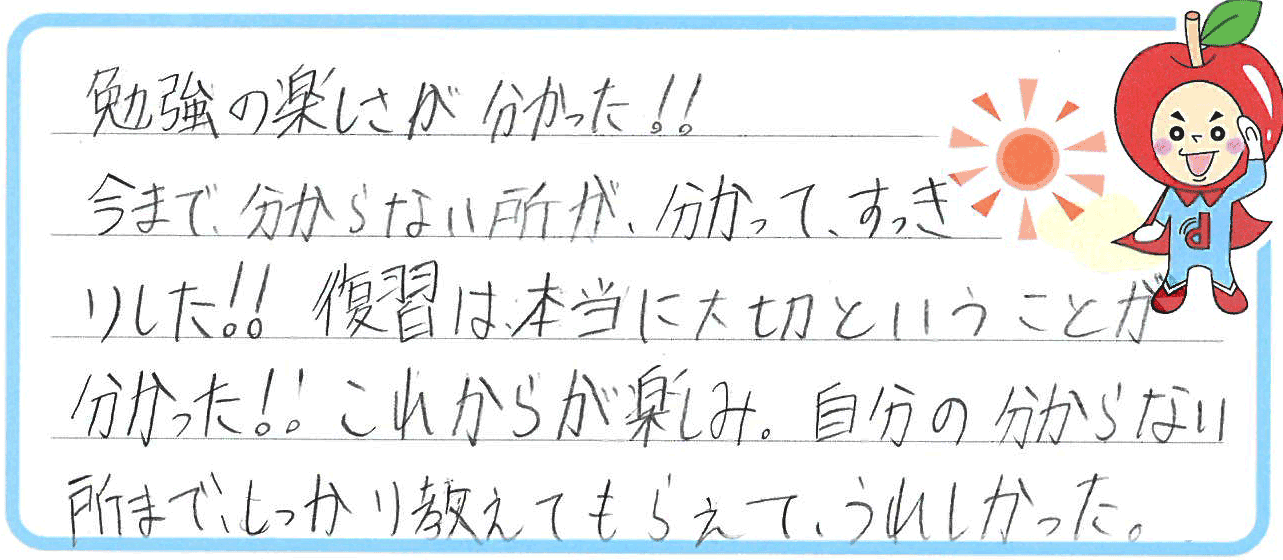 勉強の楽しさが分かった!!
今まで、分からない所が、分かって、すっき
りした!! 復習は、本当に大切ということが
分かった!! これからが楽しみ。自分の分からない
所まで、しっかり教えてもらえて、うれしかった。